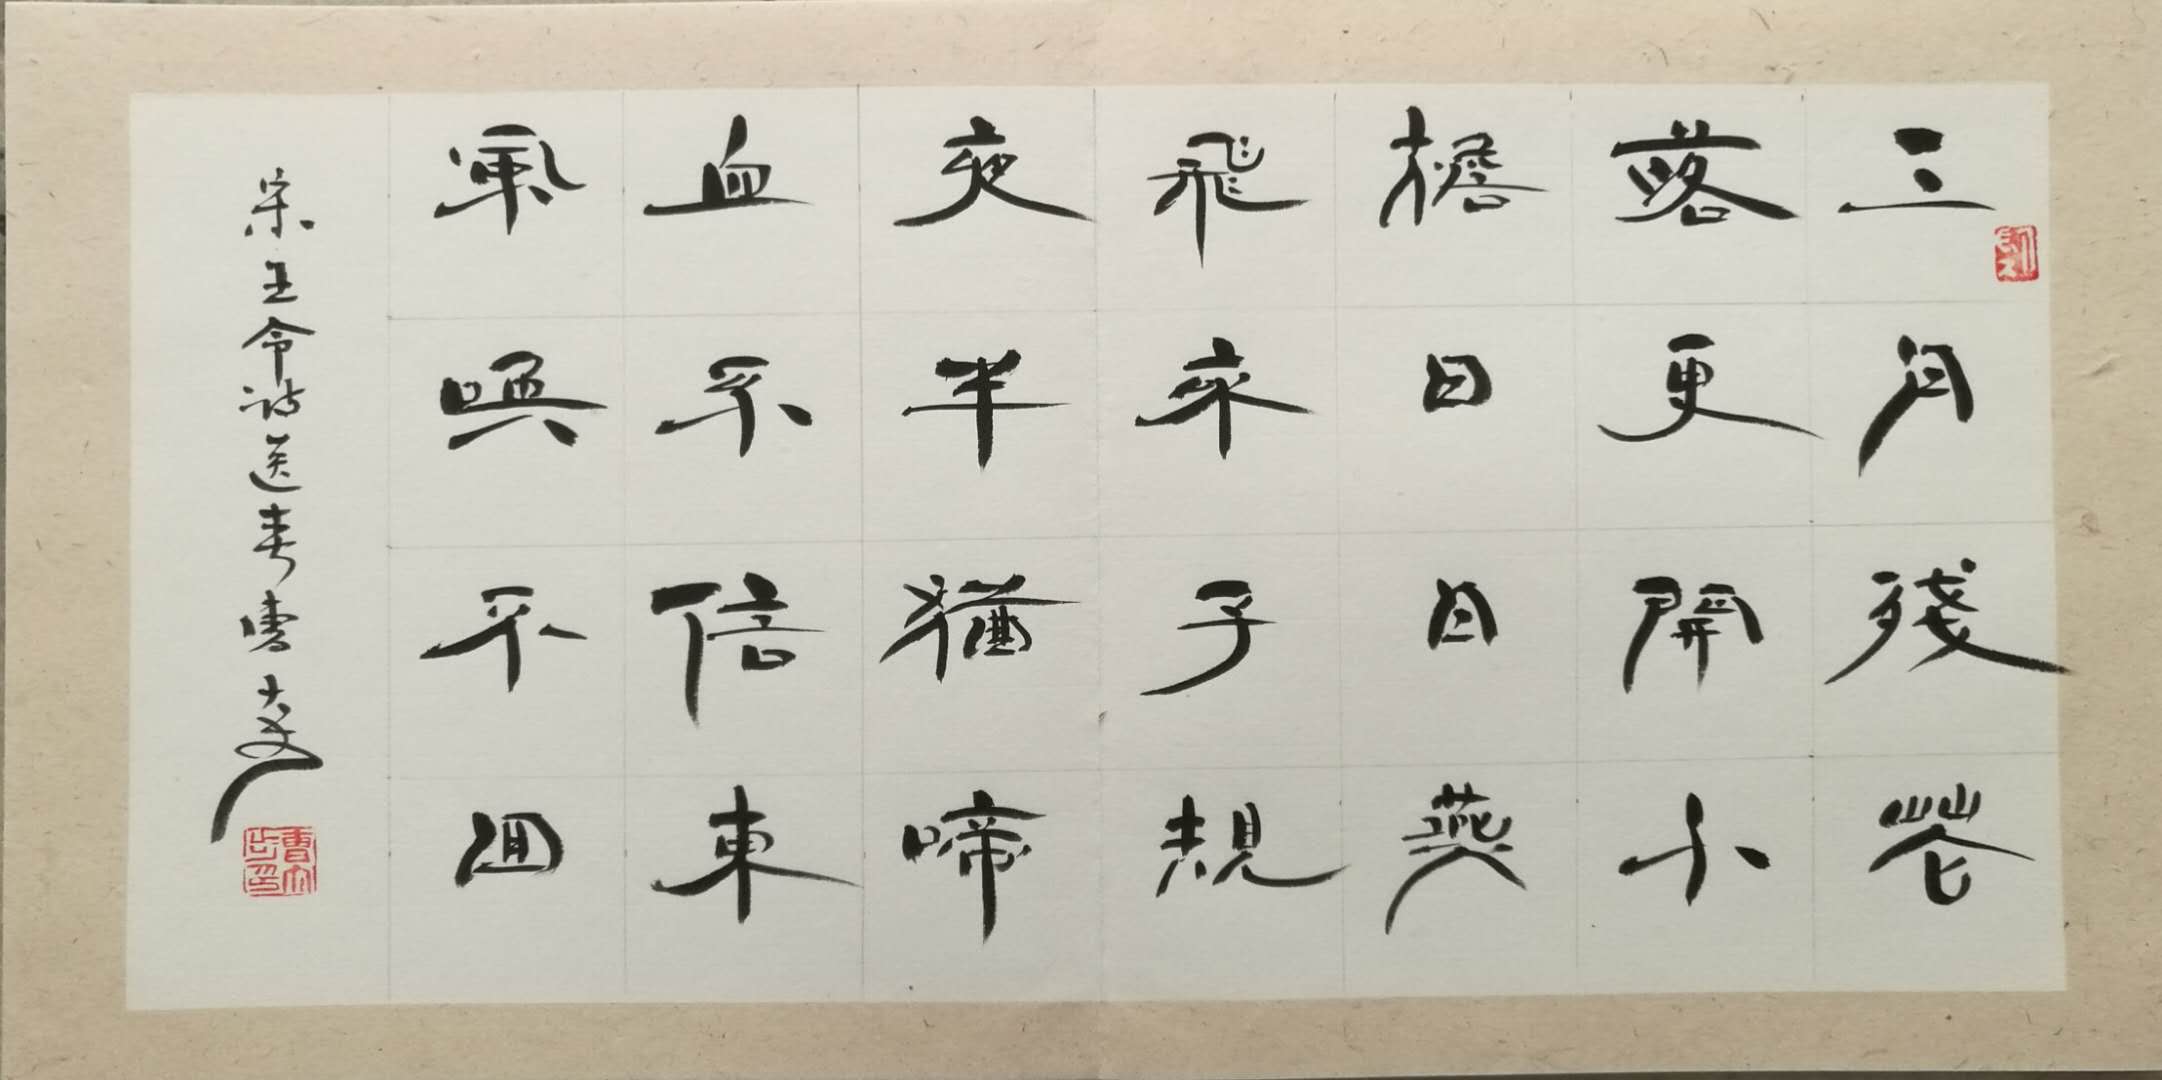 三月殘花
落更開小
檐日日燕
飛來子規
夜半猶啼
血不信東
風喚不回
宋王令詩送春曹